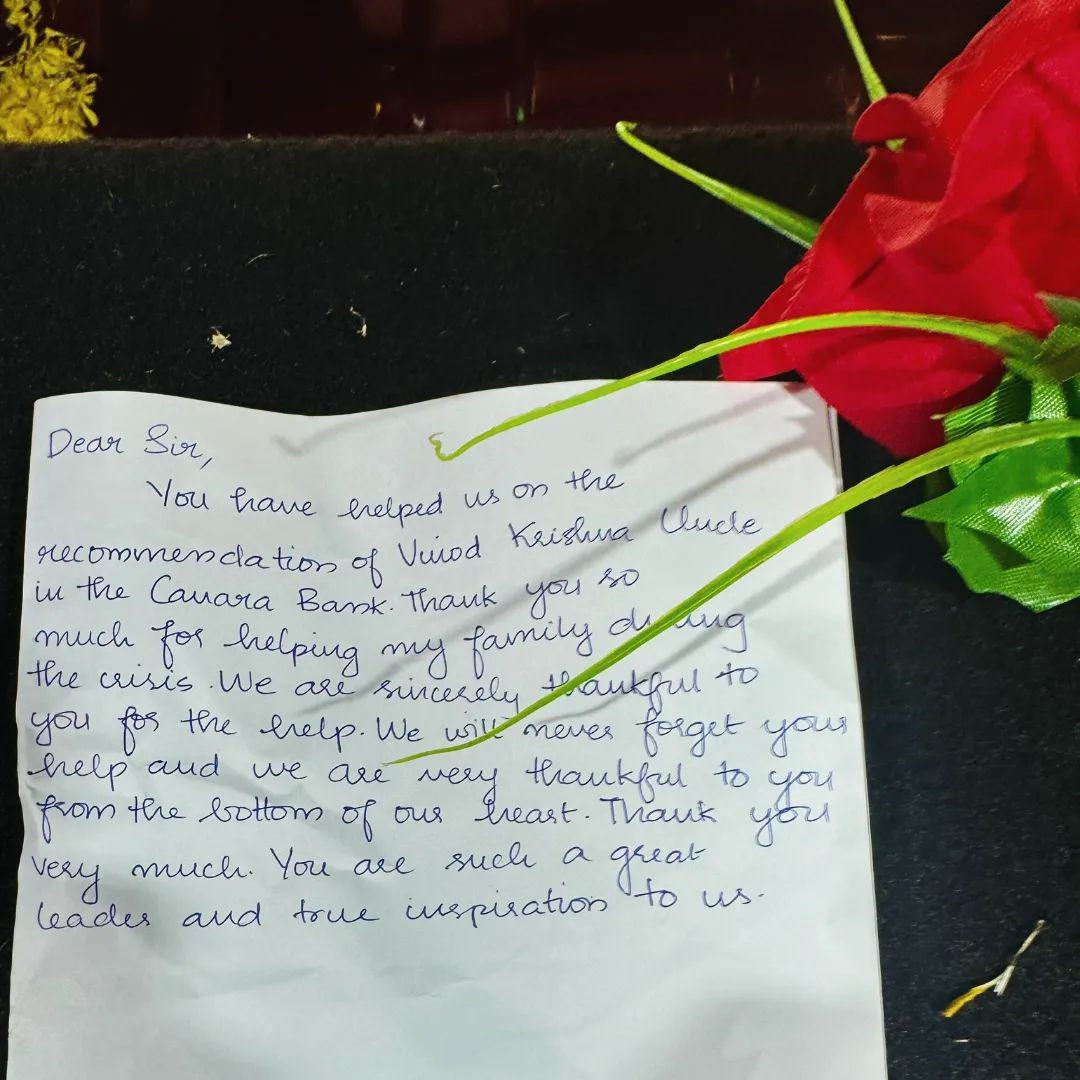 Dear Sir,
You have helped us on the
recommendation of Vinod Krishna Uncle
in the Canara Bank. Thank you so
much for helping my family during
the crisis. We are sincerely thankful to
you for the help. We will never forget your
help and we are very thankful to you
from the bottom of our heart. Thank you
very much. You are such a great
leader and true inspiration to us.